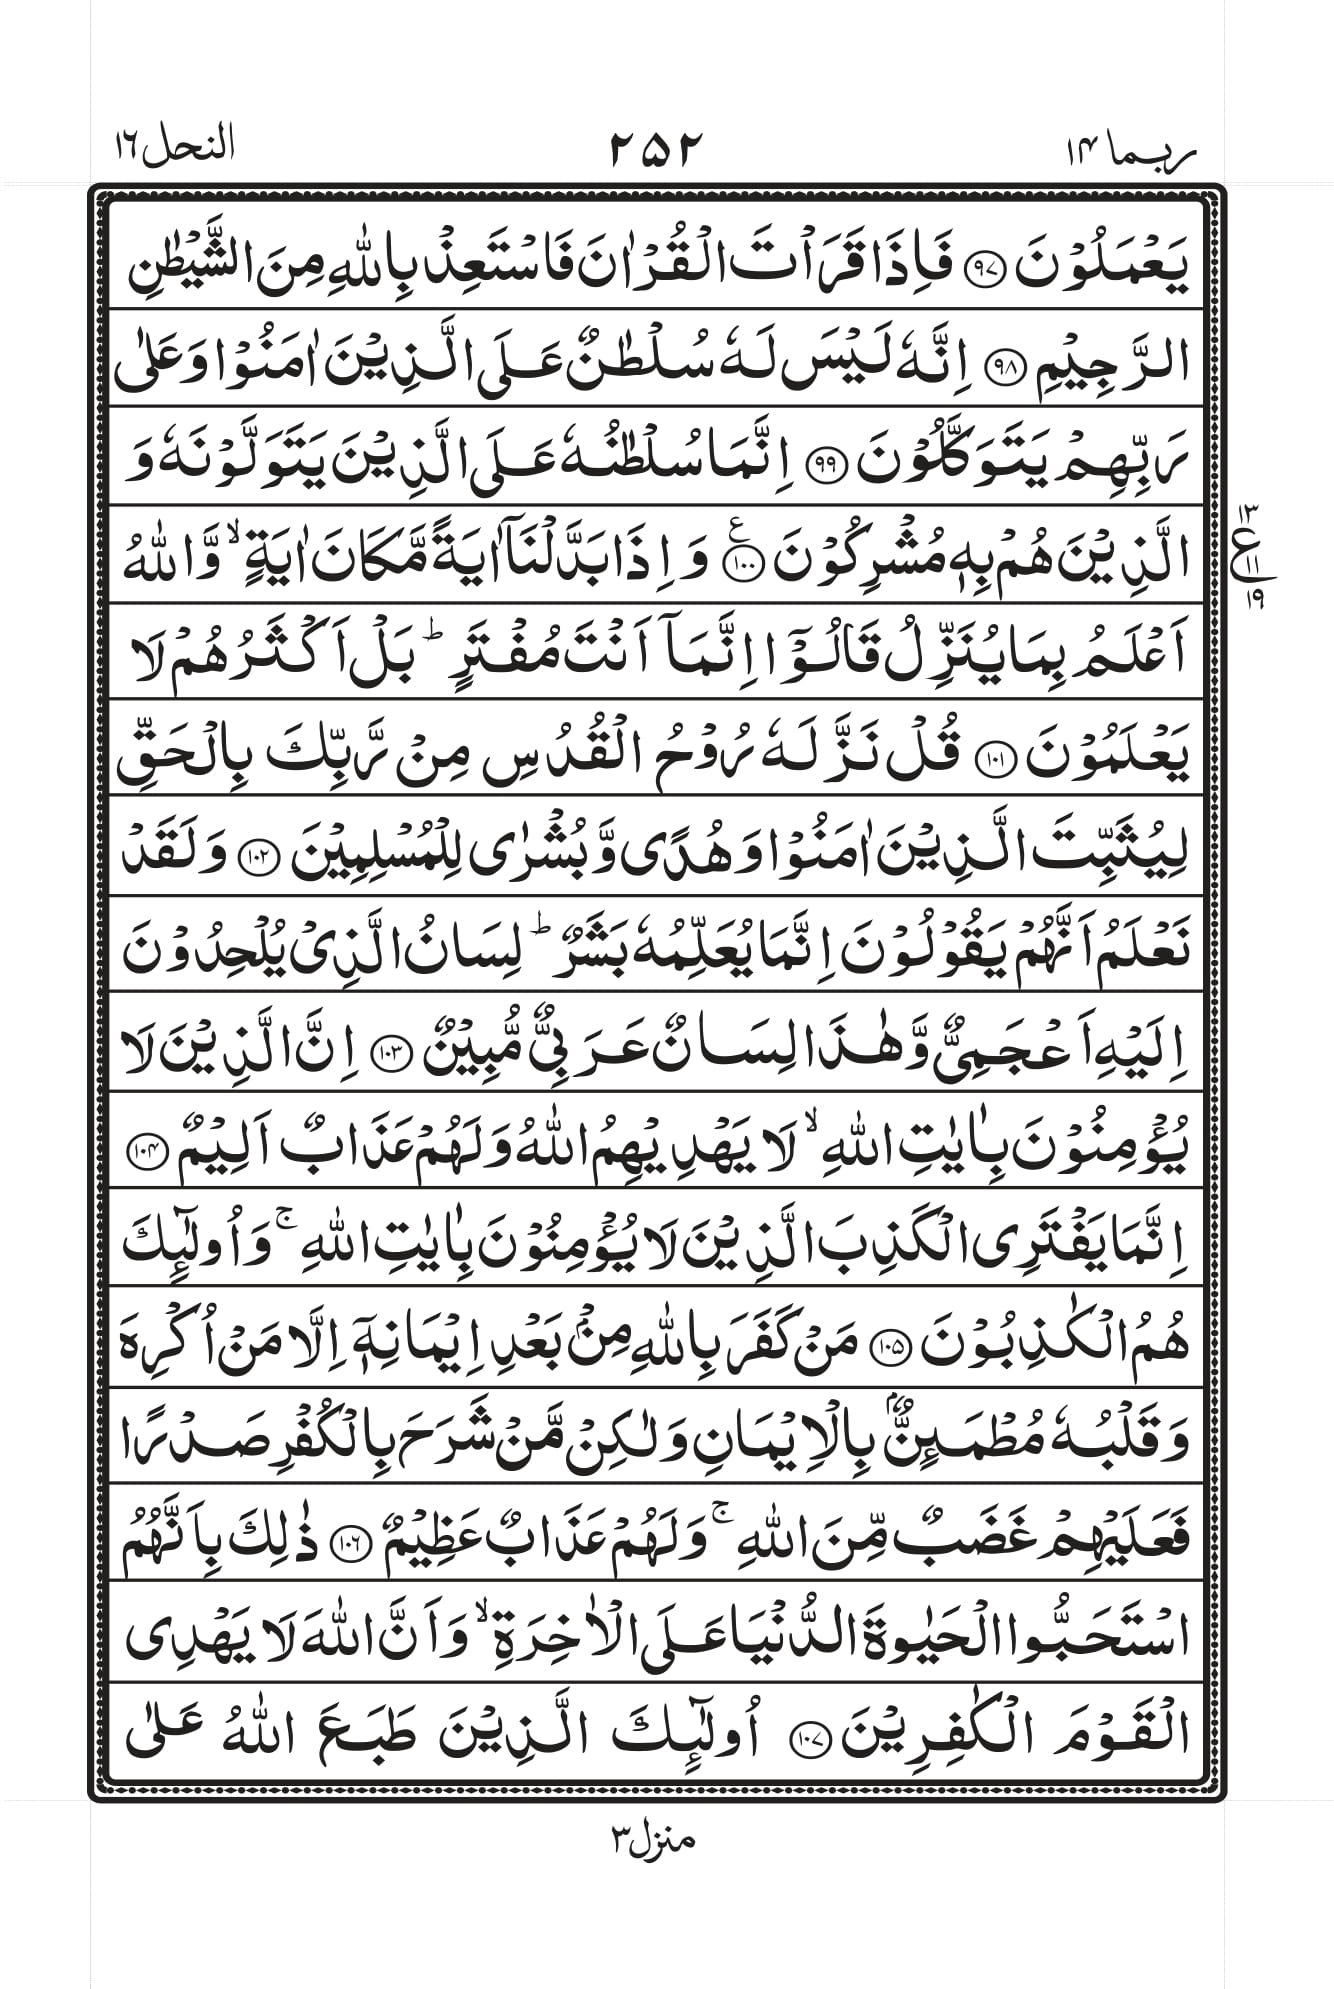 ربما ۱۴
۲۵۲
النحل ۱۶
يَعْمَلُوْنَ ۹۷ فَاِذَا قَرَاْتَ الْقُرْاٰنَ فَاسْتَعِذْ بِاللّٰهِ مِنَ الشَّيْطٰنِ
الرَّجِيْمِ ۹۸ اِنَّهٗ لَيْسَ لَهٗ سُلْطٰنٌ عَلَى الَّذِيْنَ اٰمَنُوْا وَعَلٰى
رَبِّهِمْ يَتَوَكَّلُوْنَ ۹۹ اِنَّمَا سُلْطٰنُهٗ عَلَى الَّذِيْنَ يَتَوَلَّوْنَهٗ وَ
الَّذِيْنَ هُمْ بِهٖ مُشْرِكُوْنَ ۱۰۰ ع وَاِذَا بَدَّلْنَاۤ اٰيَةً مَّكَانَ اٰيَةٍ ۙ وَّاللّٰهُ
۱۳
ع
۱۱
۱۹
اَعْلَمُ بِمَا يُنَزِّلُ قَالُوْۤا اِنَّمَاۤ اَنْتَ مُفْتَرٍ ؕ بَلْ اَكْثَرُهُمْ لَا
يَعْلَمُوْنَ ۱۰۱ قُلْ نَزَّلَهٗ رُوْحُ الْقُدُسِ مِنْ رَّبِّكَ بِالْحَقِّ
لِيُثَبِّتَ الَّذِيْنَ اٰمَنُوْا وَهُدًى وَّبُشْرٰى لِلْمُسْلِمِيْنَ ۱۰۲ وَلَقَدْ
نَعْلَمُ اَنَّهُمْ يَقُوْلُوْنَ اِنَّمَا يُعَلِّمُهٗ بَشَرٌ ؕ لِسَانُ الَّذِيْ يُلْحِدُوْنَ
اِلَيْهِ اَعْجَمِيٌّ وَّهٰذَا لِسَانٌ عَرَبِيٌّ مُّبِيْنٌ ۱۰۳ اِنَّ الَّذِيْنَ لَا
يُؤْمِنُوْنَ بِاٰيٰتِ اللّٰهِ ۙ لَا يَهْدِيْهِمُ اللّٰهُ وَلَهُمْ عَذَابٌ اَلِيْمٌ ۱۰۴
اِنَّمَا يَفْتَرِى الْكَذِبَ الَّذِيْنَ لَا يُؤْمِنُوْنَ بِاٰيٰتِ اللّٰهِ ۚ وَاُولٰٓئِكَ
هُمُ الْكٰذِبُوْنَ ۱۰۵ مَنْ كَفَرَ بِاللّٰهِ مِنْۢ بَعْدِ اِيْمَانِهٖۤ اِلَّا مَنْ اُكْرِهَ
وَقَلْبُهٗ مُطْمَئِنٌّۢ بِالْاِيْمَانِ وَلٰكِنْ مَّنْ شَرَحَ بِالْكُفْرِ صَدْرًا
فَعَلَيْهِمْ غَضَبٌ مِّنَ اللّٰهِ ۚ وَلَهُمْ عَذَابٌ عَظِيْمٌ ۱۰۶ ذٰلِكَ بِاَنَّهُمُ
اسْتَحَبُّوا الْحَيٰوةَ الدُّنْيَا عَلَى الْاٰخِرَةِ ۙ وَاَنَّ اللّٰهَ لَا يَهْدِى
الْقَوْمَ الْكٰفِرِيْنَ ۱۰۷ اُولٰٓئِكَ الَّذِيْنَ طَبَعَ اللّٰهُ عَلٰى
منزل ۳